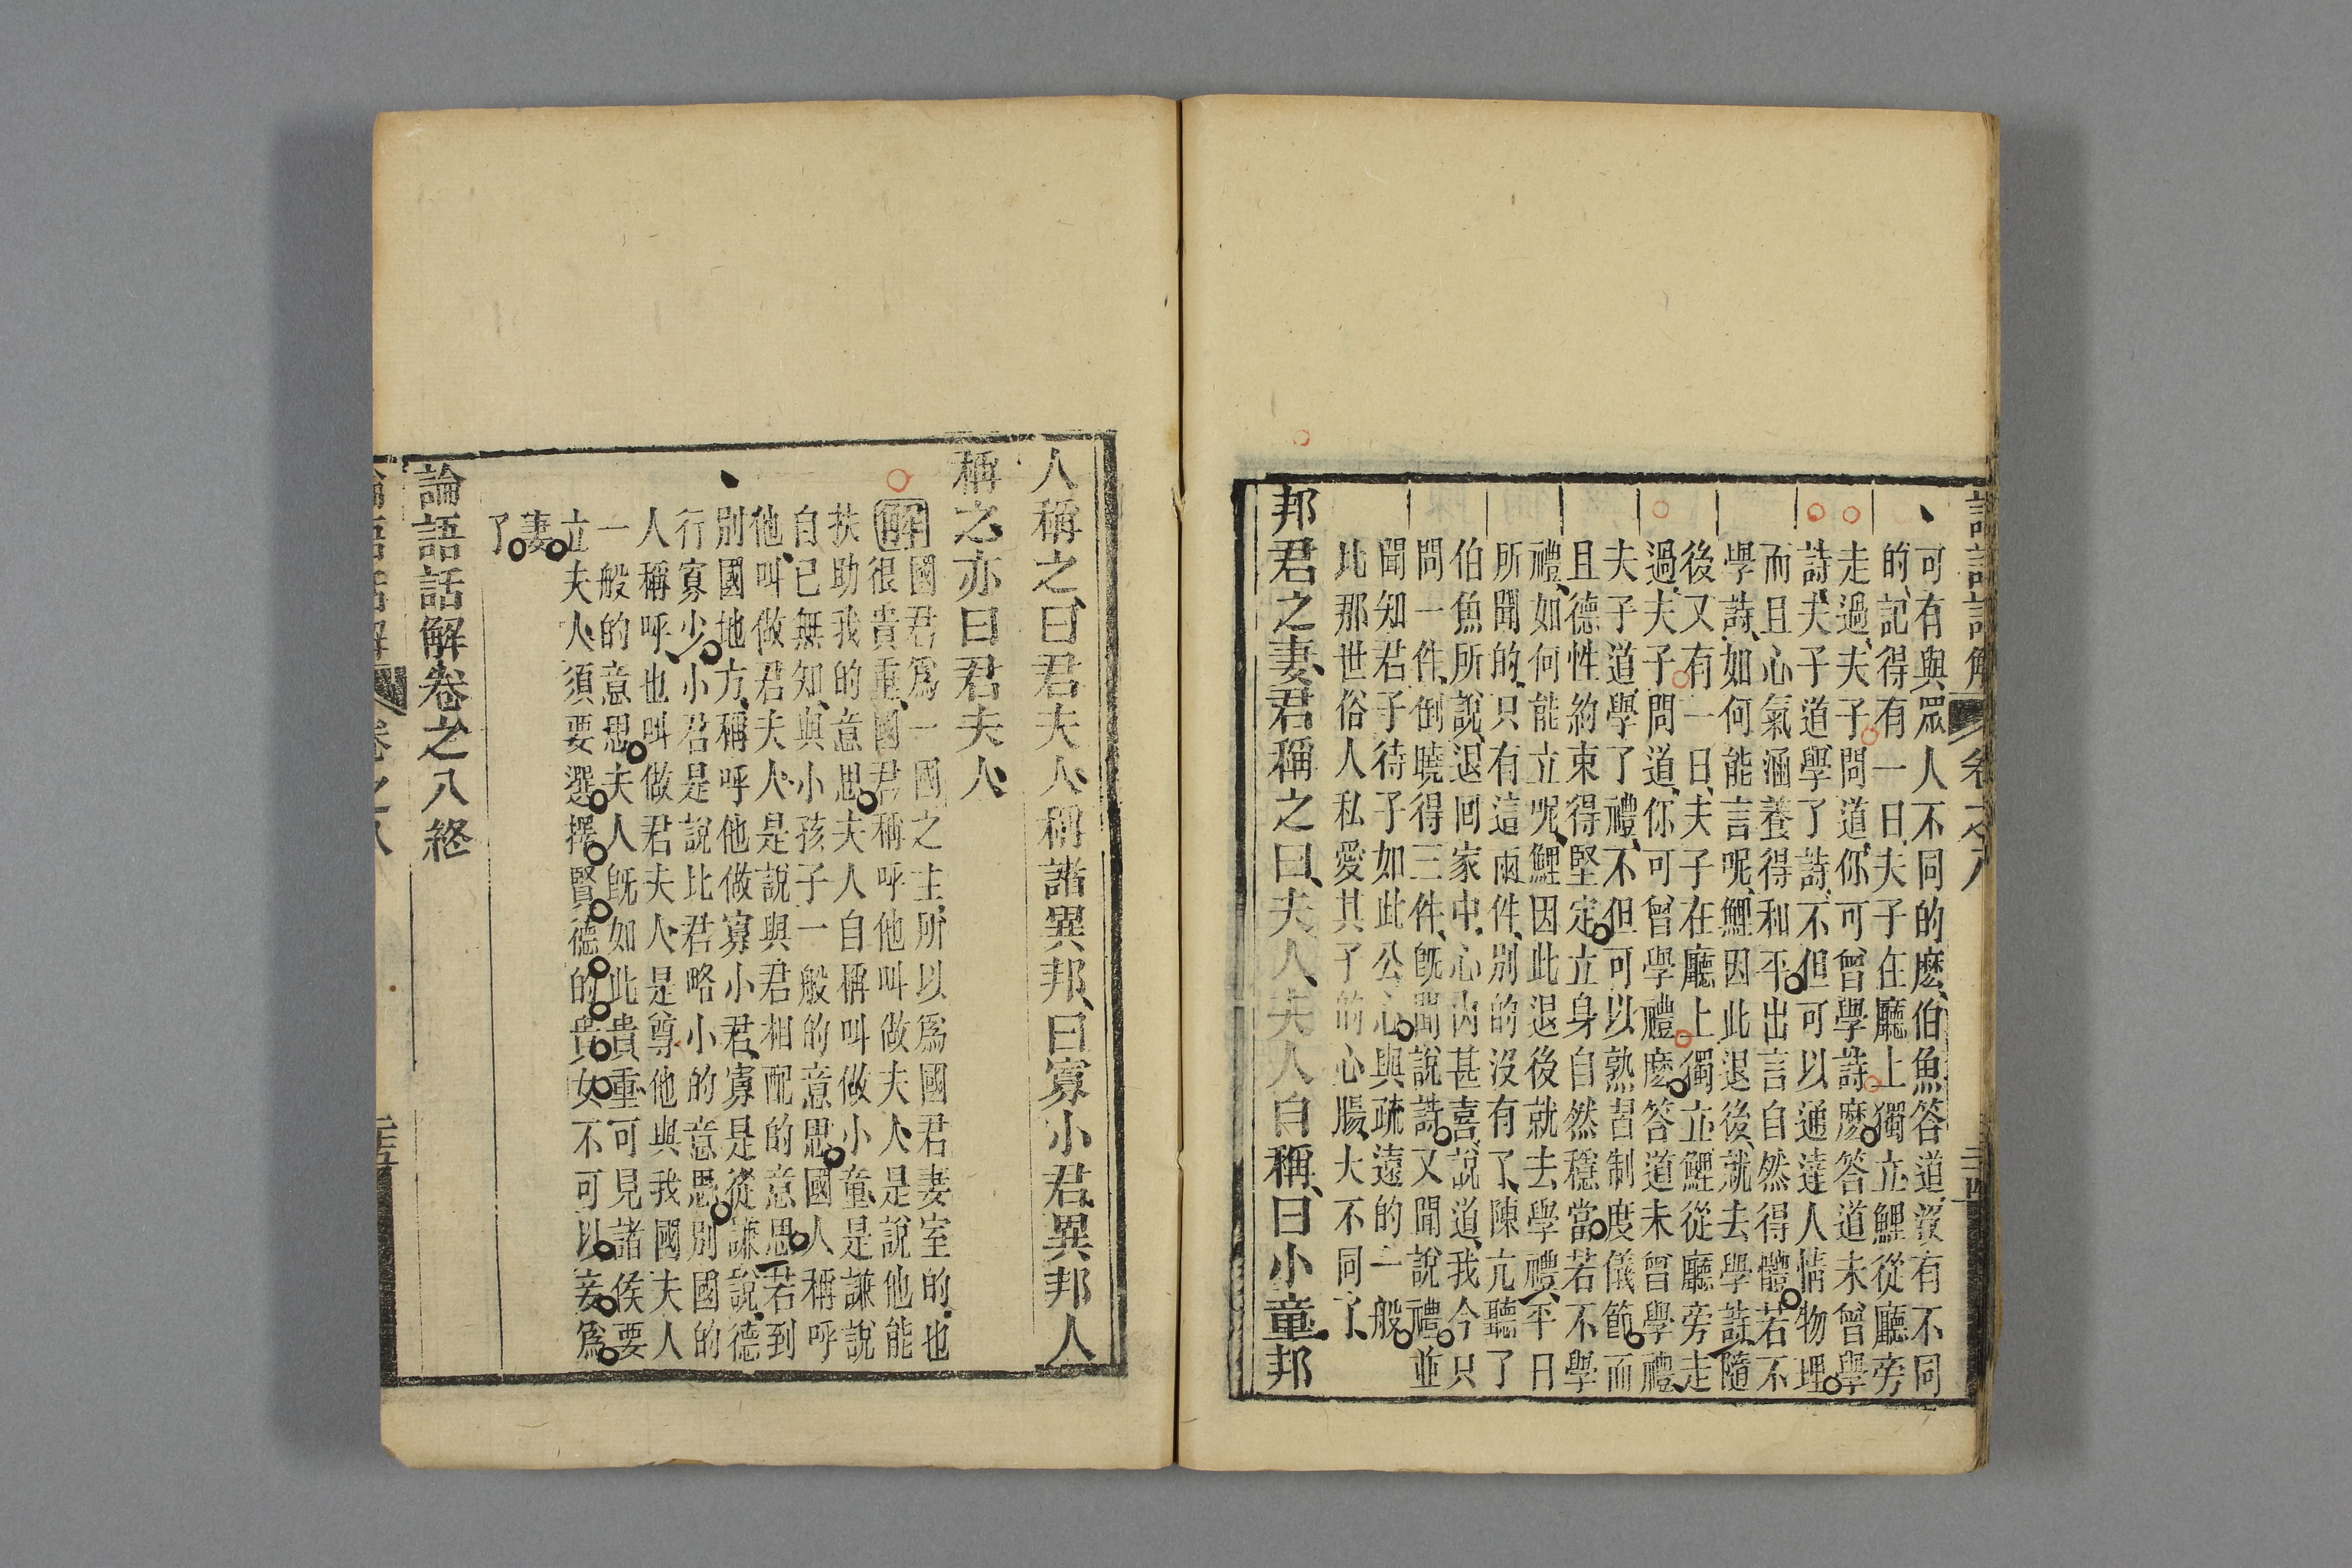 可有與眾人不同的麽、伯魚答道、没有不同
的、記得有一日、夫子在廳上獨立、鯉從廳旁
走過、夫子問道、你可曾學詩麽、答道未曾學
詩、夫子道、學了詩、不但可以通達人情物理
而且心氣涵養得和平、出言自然得體、若不
學詩、如何能言呢、鯉因此退後、就去學詩、隨
後又有一日、夫子在廳上獨立、鯉從廳旁走
過、夫子問道、你可曾學禮麽、答道未曾學禮、
夫子道、學了禮、不但可以熟習制度儀節、而
且德性約束得堅定、立身自然穩當、若不學
禮、如何能立呢、鯉因此退後就去學禮、平日
所聞的、只有這兩件、別的沒有了、陳亢聽了
伯魚所說、退回家中、心內甚喜、說道、我今只
問一件、倒曉得三件、既聞說詩、又聞說禮、並
聞知君子待子如此公心、與疏遠的一般、
比那世俗人私愛其子的心腸、大不同了、
邦君之妻、君稱之曰、夫人、夫人自稱、曰小童、邦
人稱之、曰君夫人、稱諸異邦、曰寡小君、異邦人
稱之、亦曰君夫人、
解 國君爲一國之主、所以爲國君妻室的、也
很貴重、國君稱呼他叫做夫人、是說他能
扶助我的意思、夫人自稱叫做小童、是謙說
自己無知、與小孩子一般的意思、國人稱呼
他、叫做君夫人、是說與君相配的意思、若到
別國地方、稱呼他做寡小君、寡是從謙說、德
行寡少、小君是說比君略小的意思、別國的
人稱呼、也叫做君夫人、是尊他與我國夫人
一般的意思、夫人既如此貴重、可見諸侯要
立夫人、須要選擇賢德的貴女、不可以妾爲
妻
了
論語話解卷之八終